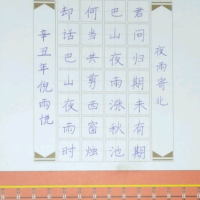 夜雨寄北
君问归期未有期
巴山夜雨涨秋池
何当共剪西窗烛
却话巴山夜雨时
辛丑年倪雨